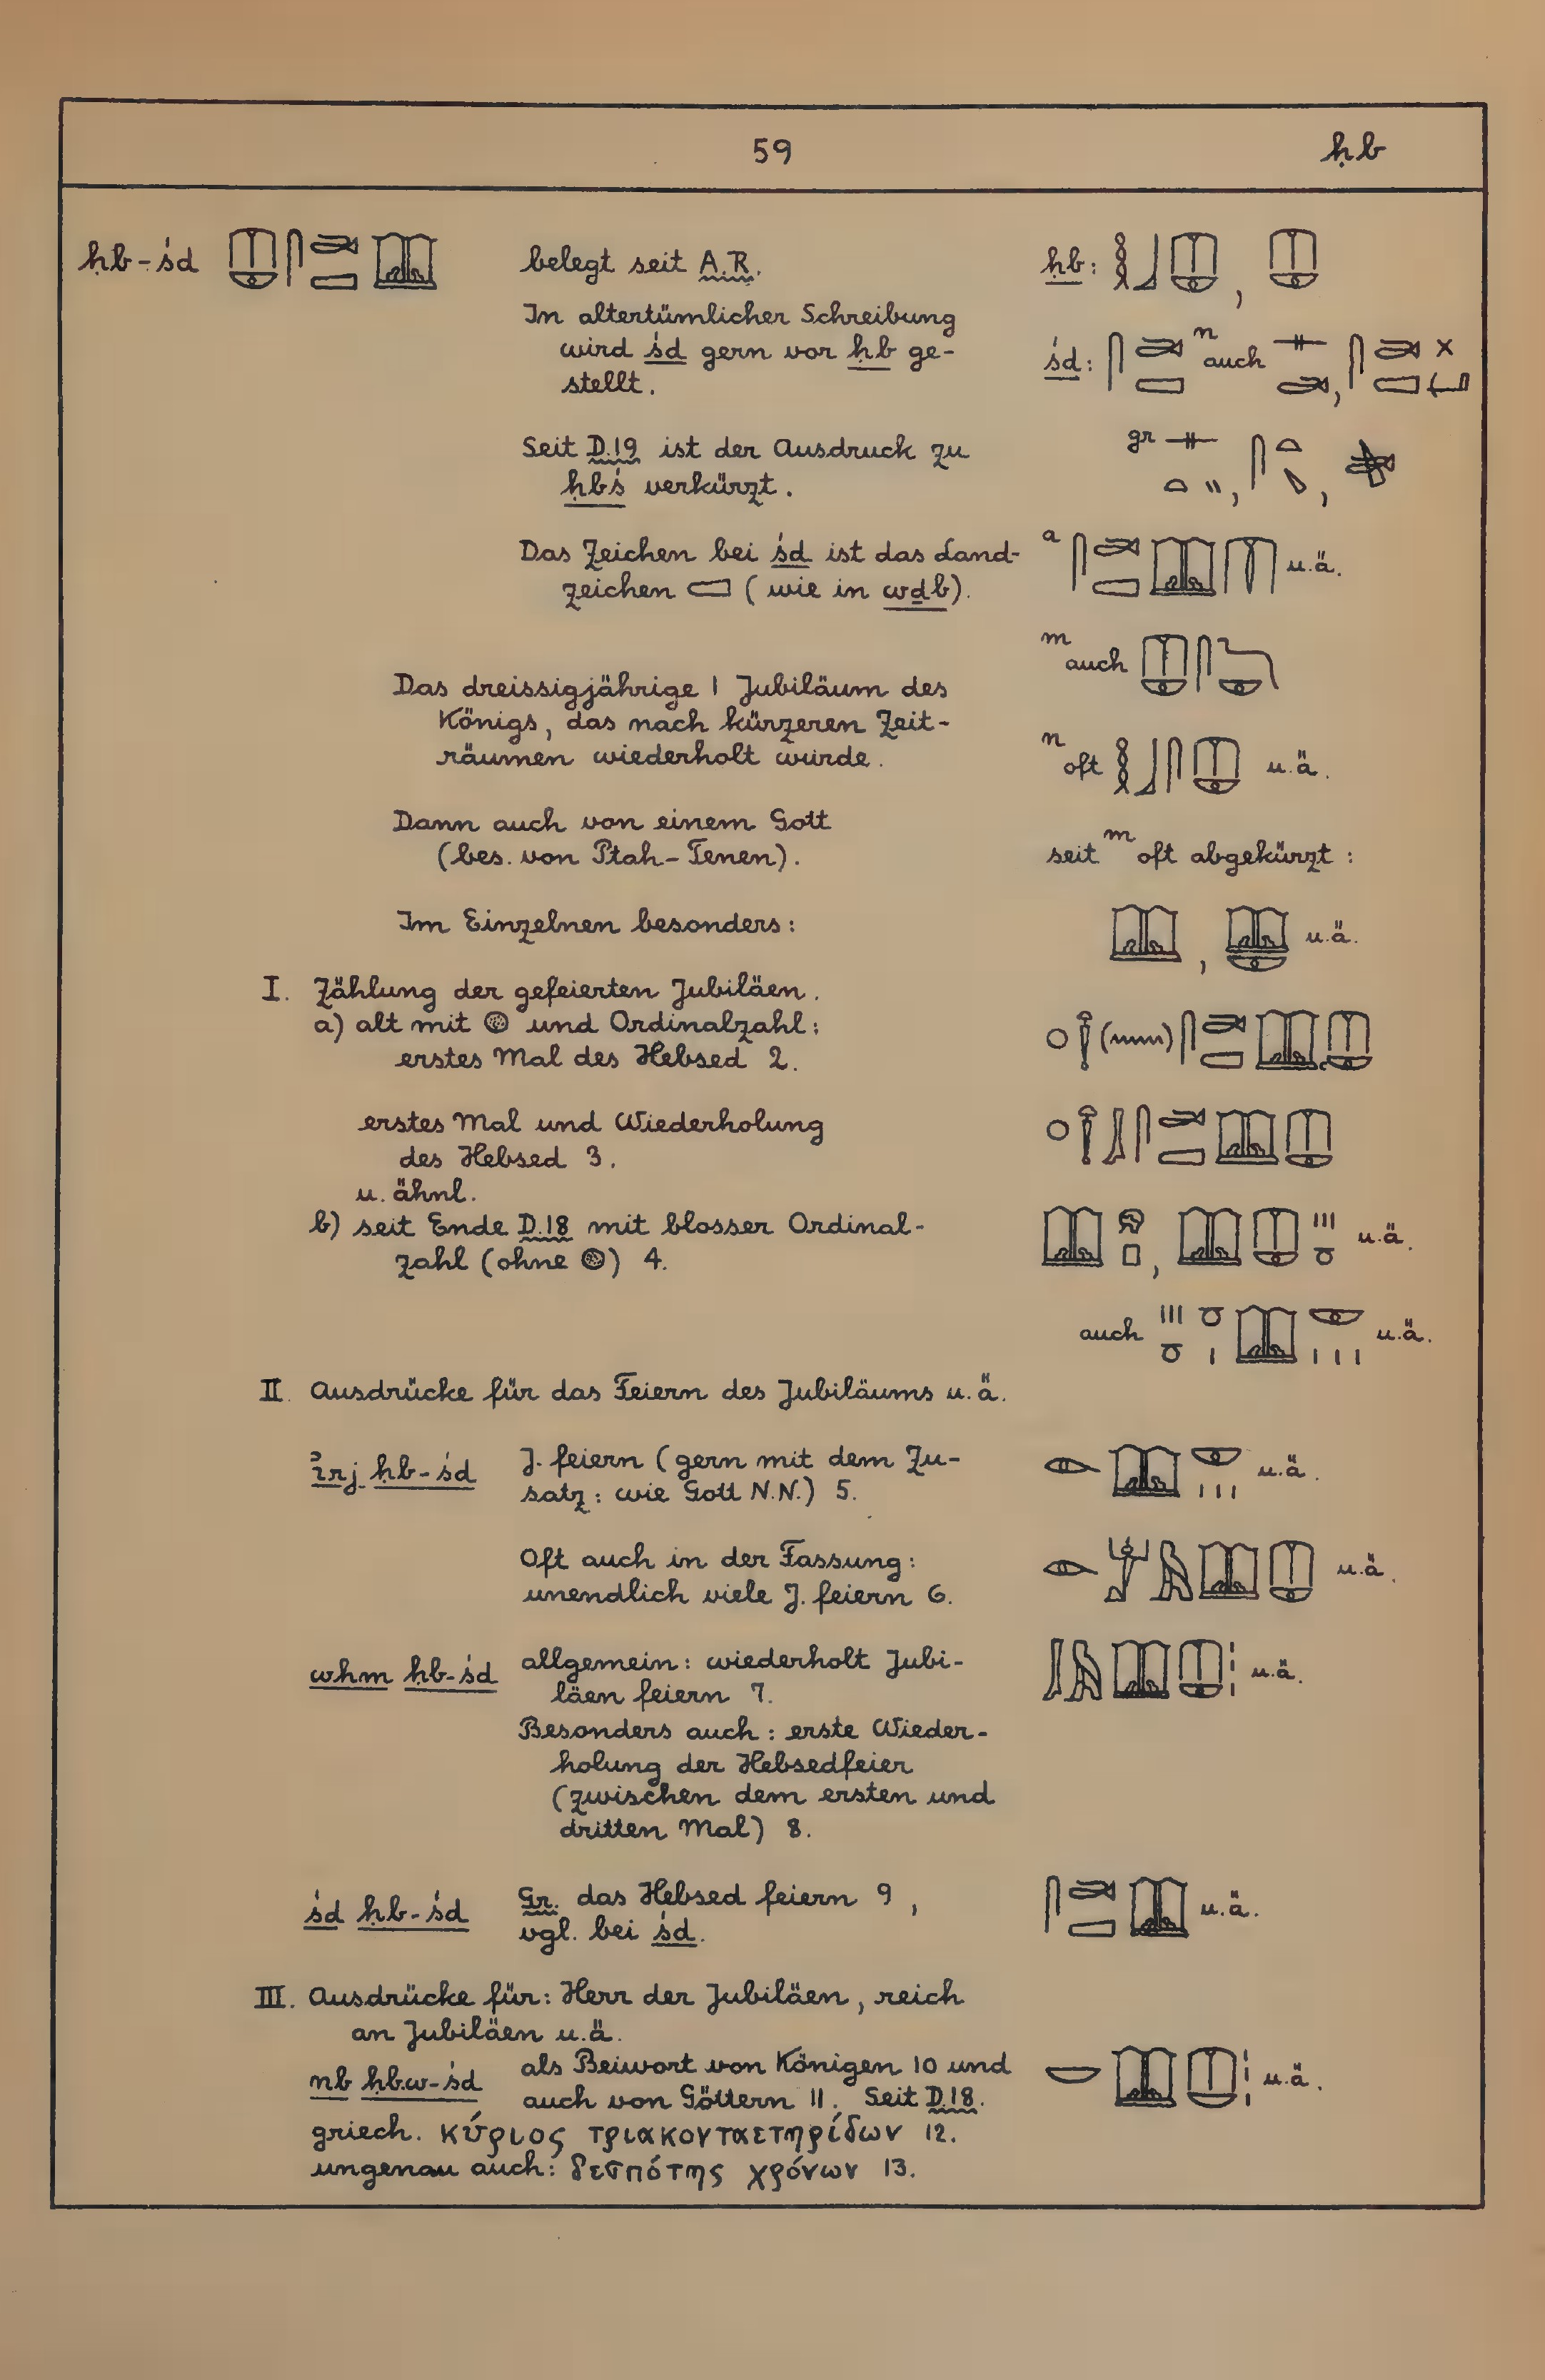 59 ḥb
ḥb-śd belegt seit A.R.
In altertümlicher Schreibung
wird śd gern vor ḥb ge-
stellt.
Seit D.19 ist der Ausdruck zu
ḥbś verkürzt.
Das Zeichen bei śd ist das Land-
zeichen (wie in wḏb).
Das dreissigjährige 1 Jubiläum des
Königs, das nach kürzeren Zeit-
räumen wiederholt wurde.
Dann auch von einem Gott
(bes. von Ptah-Tenen).
Im Einzelnen besonders:
I. Zählung der gefeierten Jubiläen.
a) alt mit und Ordinalzahl:
erstes Mal des Hebsed 2.
erstes Mal und Wiederholung
des Hebsed 3.
u. ähnl.
b) seit Ende D.18 mit blosser Ordinal-
zahl (ohne ) 4.
II. Ausdrücke für das Feiern des Jubiläums u.ä.
ı͗rj ḥb-śd J. feiern (gern mit dem Zu-
satz: wie Gott N.N.) 5.
Oft auch in der Fassung:
unendlich viele J. feiern 6.
whm ḥb-śd allgemein: wiederholt Jubi-
läen feiern 7.
Besonders auch: erste Wieder-
holung der Hebsedfeier
(zwischen dem ersten und
dritten Mal) 8.
śd ḥb-śd Gr. das Hebsed feiern 9,
vgl. bei śd.
III. Ausdrücke für: Herr der Jubiläen, reich
an Jubiläen u.ä.
nb ḥbw-śd als Beiwort von Königen 10 und
auch von Göttern 11. Seit D.18.
griech. κύριος τριακονταετηρίδων 12.
ungenau auch: δεσπότης χρόνων 13.
ḥb: ,
śd: n auch ,
gr , ,
a u.ä.
m auch
n oft u.ä.
seit m oft abgekürzt:
, u.ä.
, u.ä.
auch u.ä.
u.ä.
u.ä.
u.ä.
u.ä.
u.ä.